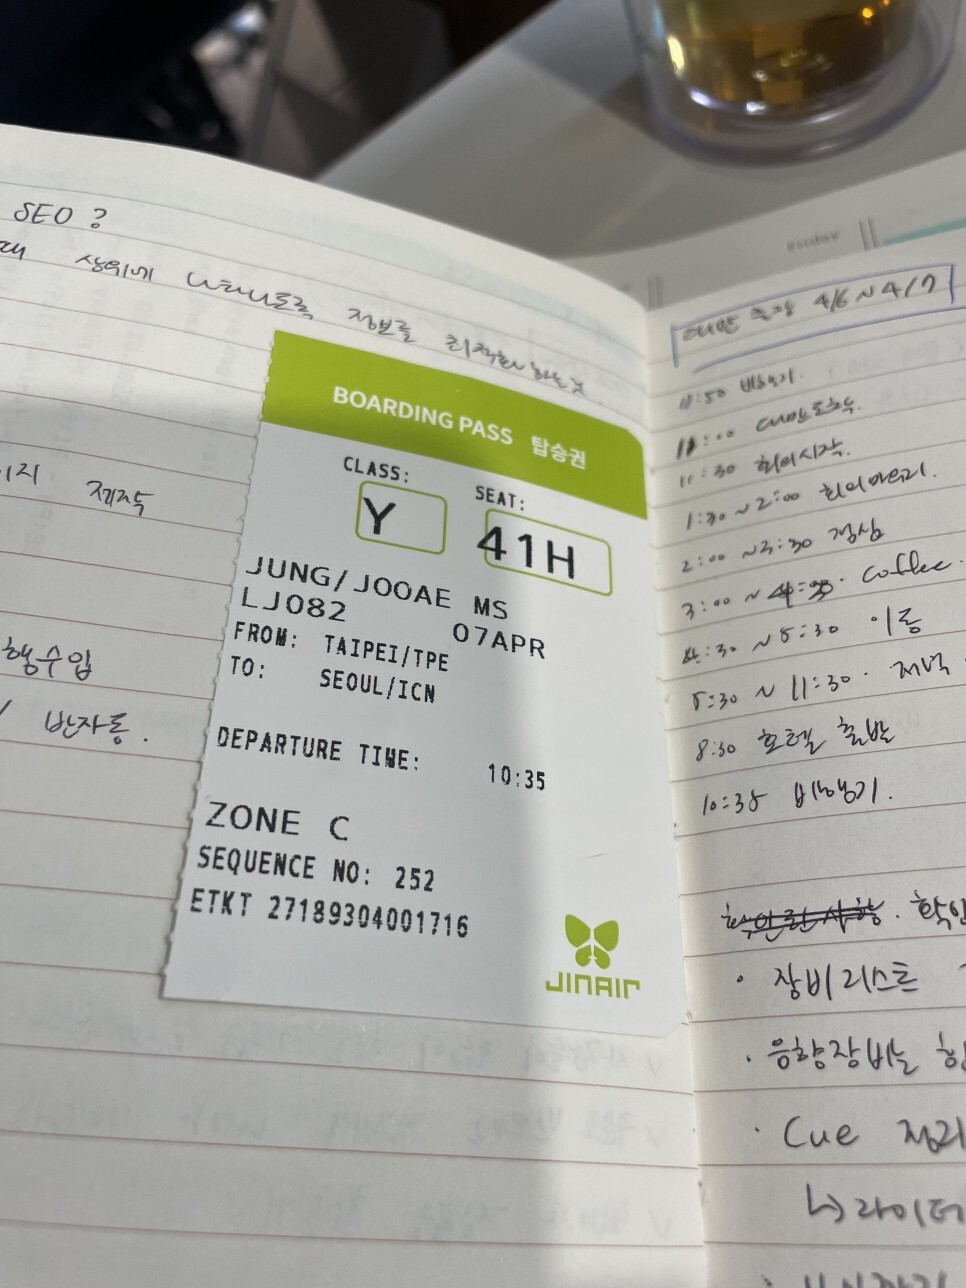 SEO ?
상위에 나타나도록 정보를 최적화 하는 것.
이지 제작
행수입
/ 반자동.
BOARDING PASS 탑승권
CLASS: SEAT:
Y 41H
JUNG/JOOAE MS
LJ082 07APR
FROM: TAIPEI/TPE
TO: SEOUL/ICN
DEPARTURE TIME: 10:35
ZONE C
SEQUENCE NO: 252
ETKT 27189304001716
JINAIR
Friday
대만 출장 4/6 ~ 4/7
:50 비행기.
11:00 대만도착.
11:30 회의시작.
1:30 ~ 2:00 회의마무리.
2:00 ~ 3:30 점심
3:00 ~ 4:30. Coffee.
4:30 ~ 5:30 이동
5:30 ~ 11:30. 저녁
8:30 호텔 출발
10:35 비행기.
· 장비리스트
· 음향장비는
· Cue 정리
↳ 라이더